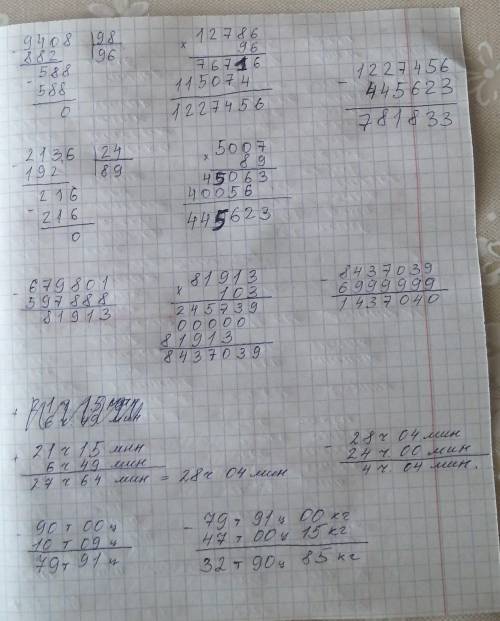 - 9408 | 98
882 | 96
- 588
588
0
× 12786
96
76716
115074
1227456
- 1227456
445623
781833
- 2136 | 24
192 | 89
- 216
216
0
× 5007
89
45063
40056
445623
- 679801
597888
81913
× 81913
103
245739
00000
81913
8437039
- 8437039
6999999
1437040
+ 21ч 15 мин
6ч 49 мин
27ч 64 мин = 28ч 04 мин
- 28ч 04 мин
24ч 00 мин
4ч 04 мин.
- 90т 00ц
10т 09ц
79т 91ц
- 79т 91ц 00кг
47т 00ц 15кг
32т 90ц 85кг